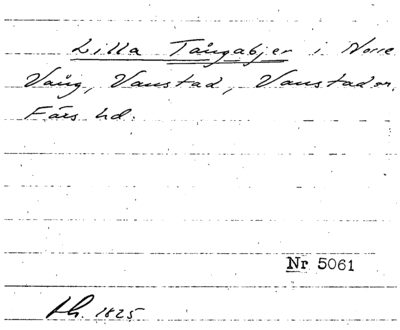 Lilla Tångabjer i Norre
Vång, Vanstad, Vanstad sn,
Färs hd.
Nr 5061
Lh. 1825